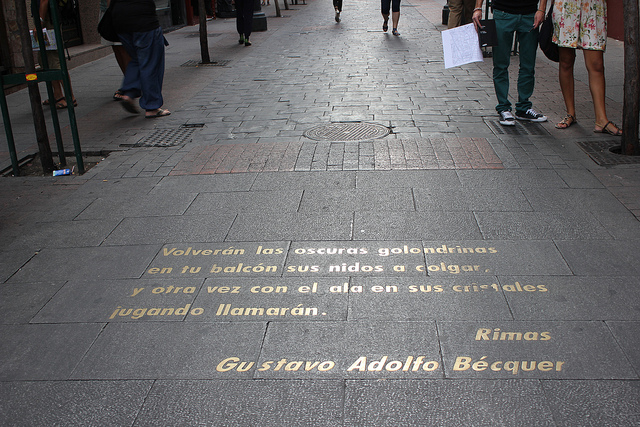 Volverán las oscuras golondrinas
en tu balcón sus nidos a colgar,
y otra vez con el ala en sus cristales
jugando llamarán.
Rimas
Gustavo Adolfo Bécquer